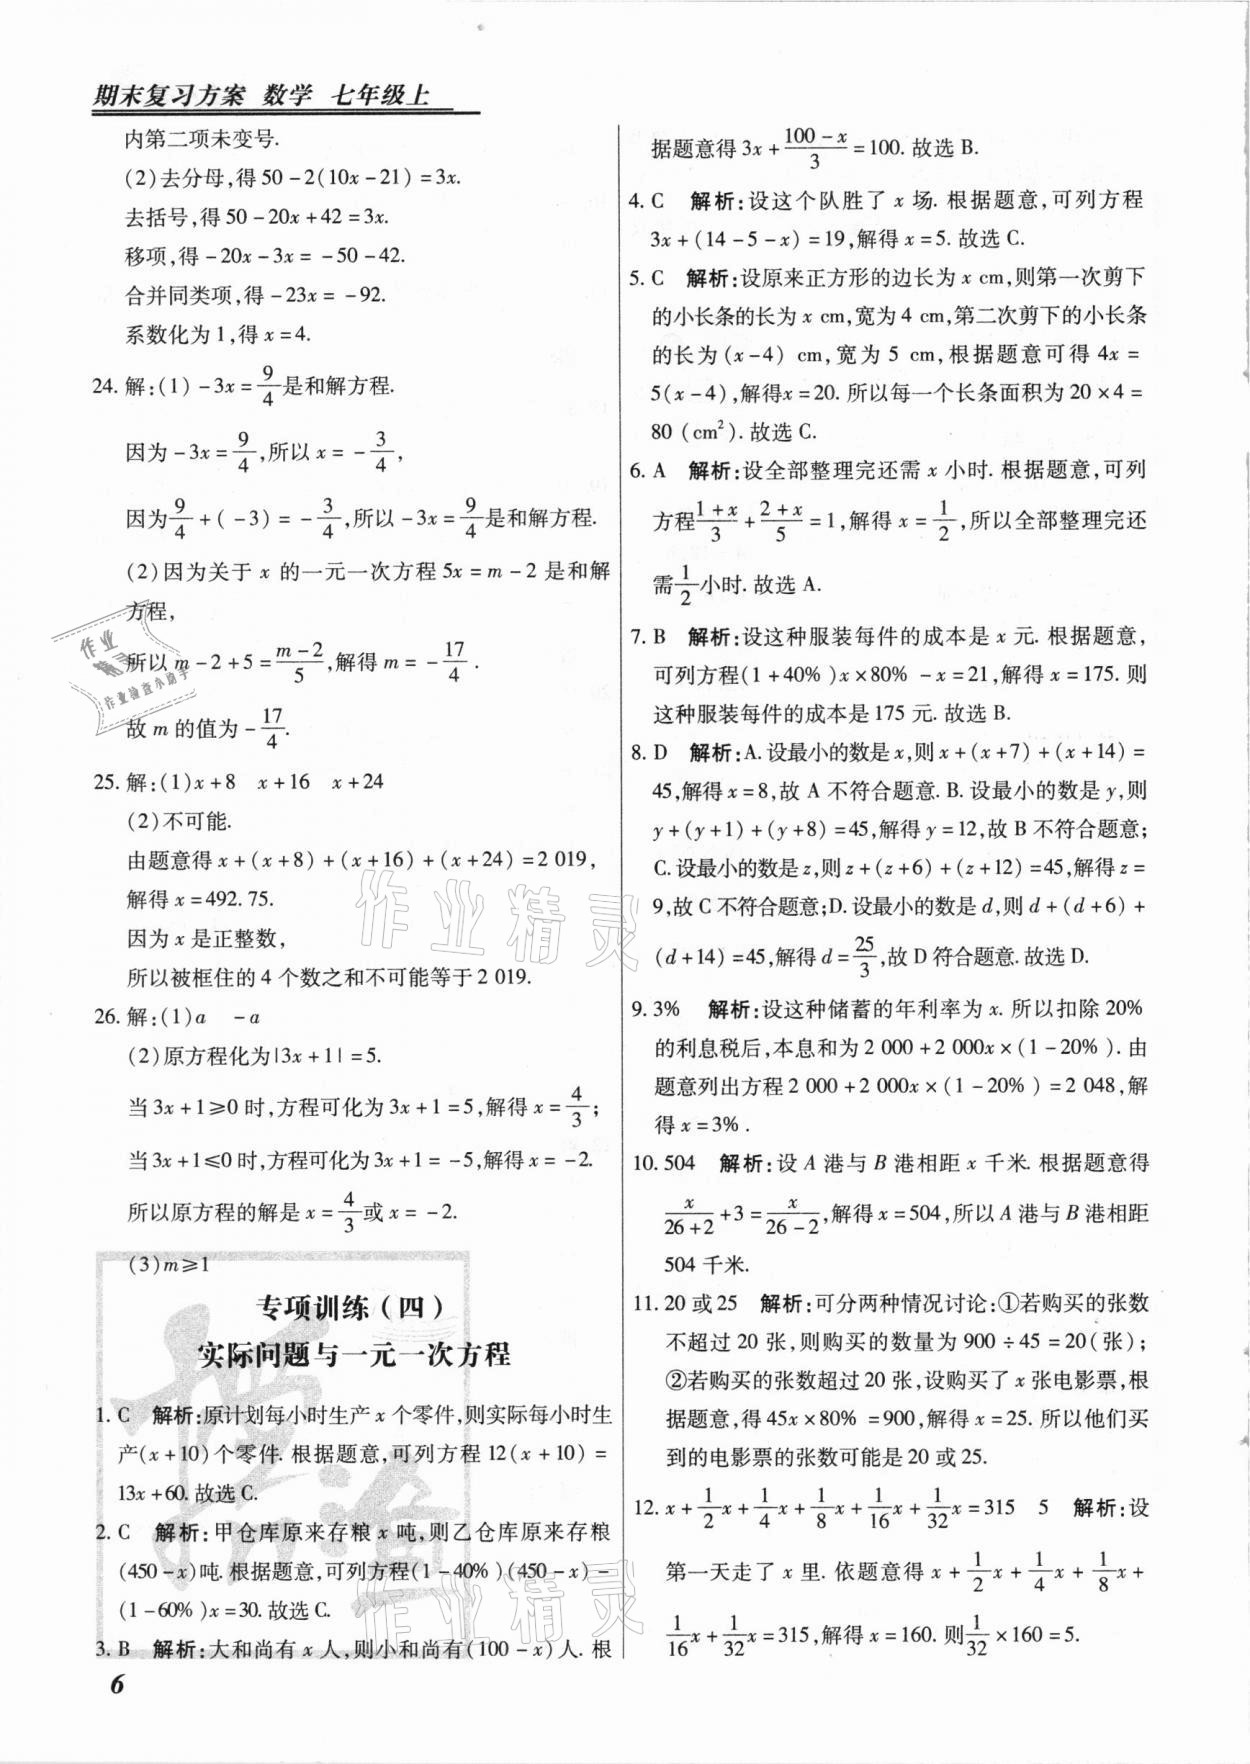 期末复习方案 数学 七年级上
内第二项未变号.
(2)去分母,得 50-2(10x-21)=3x.
去括号,得 50-20x+42=3x.
移项,得 -20x-3x=-50-42.
合并同类项,得 -23x=-92.
系数化为 1,得 x=4.
24. 解:(1) -3x=9/4是和解方程.
因为 -3x=9/4,所以 x=-3/4,
因为9/4+(-3)=-3/4,所以 -3x=9/4是和解方程.
(2)因为关于 x 的一元一次方程 5x=m-2 是和解
方程,
所以 m-2+5=(m-2)/5,解得 m=-17/4.
故 m 的值为 -17/4.
25. 解:(1)x+8 x+16 x+24
(2)不可能.
由题意得 x+(x+8)+(x+16)+(x+24)=2 019,
解得 x=492.75.
因为 x 是正整数,
所以被框住的 4 个数之和不可能等于 2 019.
26. 解:(1)a -a
(2)原方程化为|3x+1|=5.
当 3x+1≥0 时,方程可化为 3x+1=5,解得 x=4/3;
当 3x+1≤0 时,方程可化为 3x+1=-5,解得 x=-2.
所以原方程的解是 x=4/3或 x=-2.
(3)m≥1
专项训练(四)
实际问题与一元一次方程
1. C 解析:原计划每小时生产 x 个零件,则实际每小时生
产(x+10)个零件. 根据题意,可列方程 12(x+10)=
13x+60. 故选 C.
2. C 解析:甲仓库原来存粮 x 吨,则乙仓库原来存粮
(450-x)吨. 根据题意,可列方程(1-40%)(450-x)-
(1-60%)x=30. 故选 C.
3. B 解析:大和尚有 x 人,则小和尚有(100-x)人. 根
6
据题意得 3x+(100-x)/3=100. 故选 B.
4. C 解析:设这个队胜了 x 场. 根据题意,可列方程
3x+(14-5-x)=19,解得 x=5. 故选 C.
5. C 解析:设原来正方形的边长为 x cm,则第一次剪下
的小长条的长为 x cm,宽为 4 cm,第二次剪下的小长条
的长为(x-4) cm,宽为 5 cm,根据题意可得 4x=
5(x-4),解得x=20. 所以每一个长条面积为 20×4=
80 (cm²). 故选 C.
6. A 解析:设全部整理完还需 x 小时. 根据题意,可列
方程(1+x)/3+(2+x)/5=1,解得 x=1/2,所以全部整理完还
需1/2小时. 故选 A.
7. B 解析:设这种服装每件的成本是 x 元. 根据题意,
可列方程(1+40%)x×80%-x=21,解得 x=175. 则
这种服装每件的成本是 175 元. 故选 B.
8. D 解析:A. 设最小的数是 x,则 x+(x+7)+(x+14)=
45,解得 x=8,故 A 不符合题意. B. 设最小的数是 y,则
y+(y+1)+(y+8)=45,解得 y=12,故 B 不符合题意;
C. 设最小的数是 z,则 z+(z+6)+(z+12)=45,解得 z=
9,故 C 不符合题意;D. 设最小的数是 d,则 d+(d+6)+
(d+14)=45,解得 d=25/3,故 D 符合题意. 故选 D.
9. 3% 解析:设这种储蓄的年利率为 x. 所以扣除 20%
的利息税后,本息和为 2 000+2 000x×(1-20%). 由
题意列出方程 2 000+2 000x×(1-20%)=2 048,解
得 x=3%.
10. 504 解析:设 A 港与 B 港相距 x 千米. 根据题意得
x/(26+2)+3=x/(26-2),解得 x=504,所以 A 港与 B 港相距
504 千米.
11. 20 或 25 解析:可分两种情况讨论:①若购买的张数
不超过 20 张,则购买的数量为 900÷45=20(张);
②若购买的张数超过 20 张,设购买了 x 张电影票,根
据题意,得 45x×80%=900,解得 x=25. 所以他们买
到的电影票的张数可能是 20 或 25.
12. x+1/2x+1/4x+1/8x+1/16x+1/32x=315 5 解析:设
第一天走了 x 里. 依题意得 x+1/2x+1/4x+1/8x+
1/16x+1/32x=315,解得 x=160. 则1/32×160=5.
作业
作业检查小助手
作业精灵
作业精灵